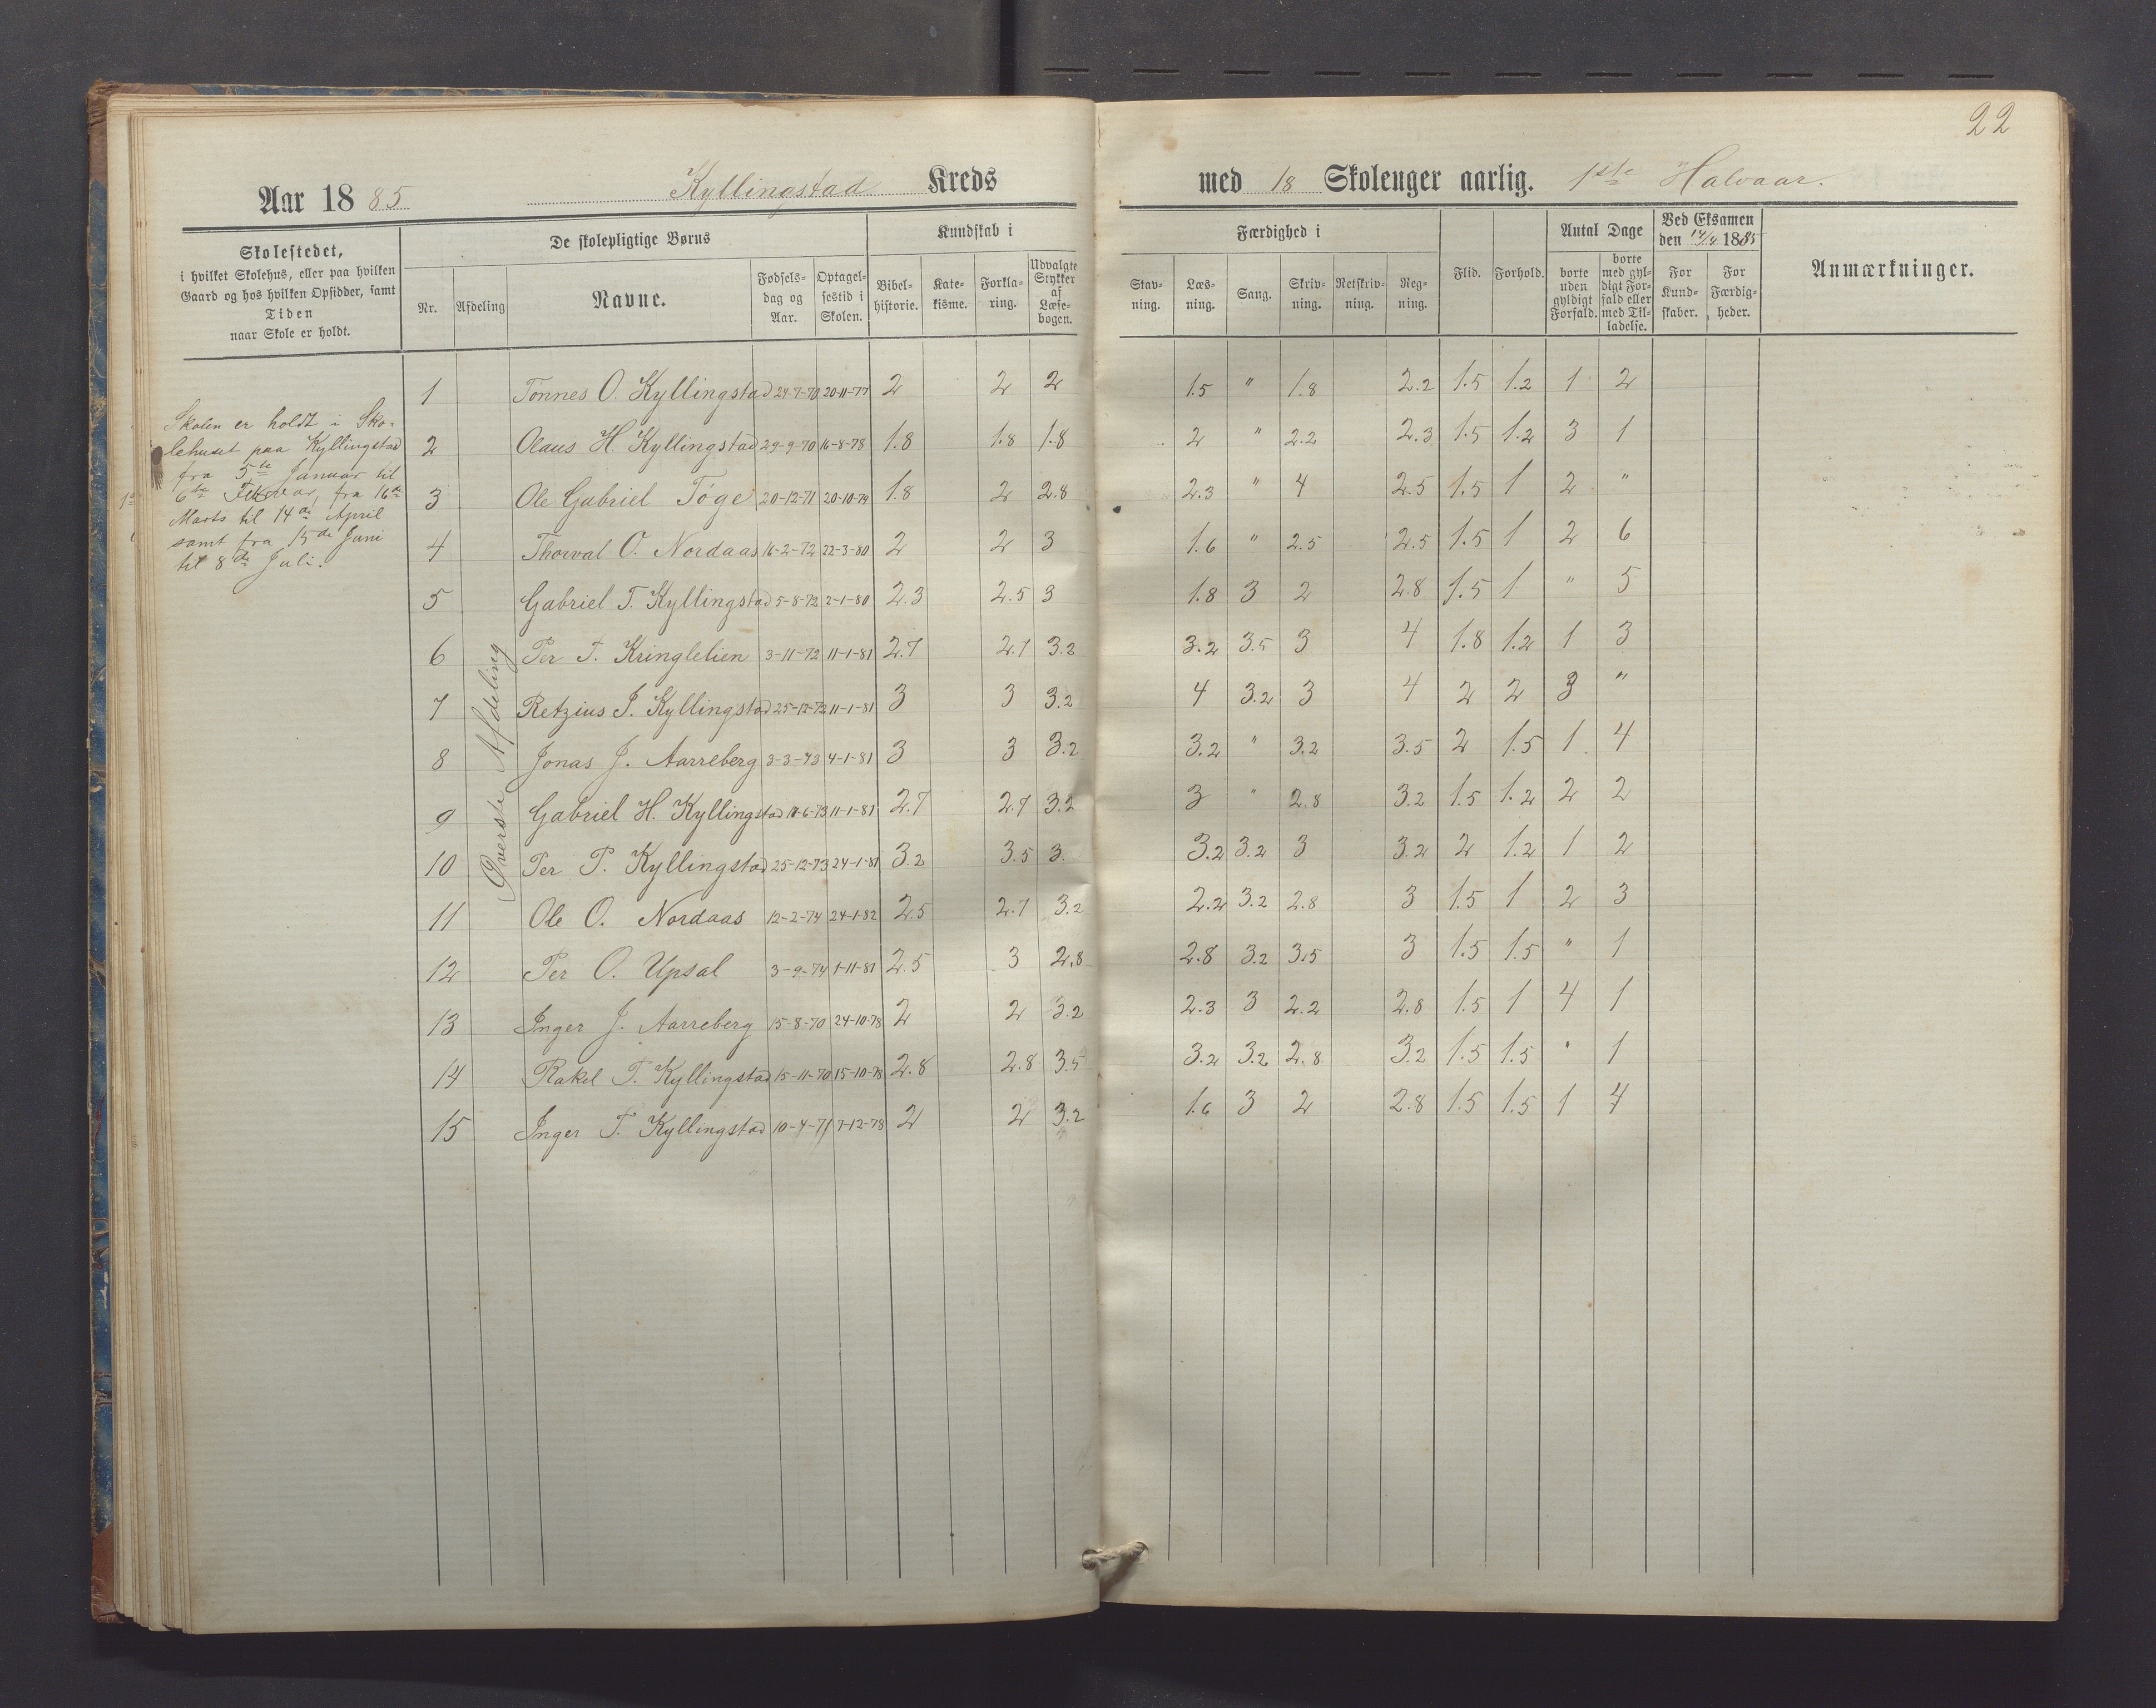 22
Aar 1885 Kyllingstad Kreds med 18 Skoleuger aarlig. 1ste Halvaar.
Skolestedet,
i hvilket Skolehus, eller paa hvilken
Gaard og hos hvilken Opsidder, samt
Tiden
naar Skole er holdt.
De skolepligtige Børns
Nr. Afdeling Navne. Fødselsdag og Aar. Optagelsestid i Skolen.
Kundskab i
Bibelhistorie. Katekisme. Forklaring. Udvalgte Stykker af Læsebogen.
Færdighed i
Stavning. Læsning. Sang. Skrivning. Retskrivning. Regning.
Flid. Forhold.
Antal Dage
borte uden gyldigt Forfald. borte med gyldigt Forfald eller med Tilladelse.
Ved Eksamen den 14/4 1885
For Kundskaber. For Færdigheder.
Anmærkninger.
Skolen er holdt i Sko-
lehuset paa Kyllingstad
fra 5te Januar til
6te Februar, fra 16de
Marts til 14de April
samt fra 15de Juni
til 8de Juli.
Øverste Afdeling
1 Tønnes O. Kyllingstad 24-7-70 20-11-77 2 2 2 1.5 " 1.8 2.2 1.5 1.2 1 2
2 Olaus H Kyllingstad 29-9-70 16-8-78 1.8 1.8 1.8 2 " 2.2 2.3 1.5 1.2 3 1
3 Ole Gabriel Tøge 20-12-71 20-10-79 1.8 2 2.8 2.3 " 4 2.5 1.5 1 2 "
4 Thorval O. Nordaas 16-2-72 22-3-80 2 2 3 1.6 " 2.5 2.5 1.5 1 2 6
5 Gabriel T. Kyllingstad 5-8-72 2-1-80 2.3 2.5 3 1.8 3 2 2.8 1.5 1 " 5
6 Per T. Kringlelien 3-11-72 11-1-81 2.7 2.7 3.2 3.2 3.5 3 4 1.8 1.2 1 3
7 Retzius J. Kyllingstad 25-12-72 11-1-81 3 3 3.2 4 3.2 3 4 2 2 3 "
8 Jonas J. Aarreberg 3-3-73 4-1-81 3 3 3.2 3.2 " 3.2 3.5 2 1.5 1 4
9 Gabriel H. Kyllingstad 11-6-73 11-1-81 2.7 2.7 3.2 3 " 2.8 3.2 1.5 1.2 2 2
10 Per P. Kyllingstad 25-12-73 24-1-81 3.2 3.5 3. 3.2 3.2 3 3.2 2 1.2 1 2
11 Ole O. Nordaas 12-2-74 24-1-82 2.5 2.7 3.2 2.2 3.2 2.8 3 1.5 1 2 3
12 Per O. Upsal 3-9-74 1-11-81 2.5 3 2.8 2.8 3.2 3.5 3 1.5 1.5 " 1
13 Inger J. Aarreberg 15-8-70 24-10-78 2 2 3.2 2.3 3 2.2 2.8 1.5 1 4 1
14 Rakel T. Kyllingstad 15-11-70 15-10-78 2.8 2.8 3.5 3.2 3.2 2.8 3.2 1.5 1.5 " 1
15 Inger T. Kyllingstad 10-4-71 7-12-78 2 2 3.2 1.6 3 2 2.8 1.5 1.5 1 4